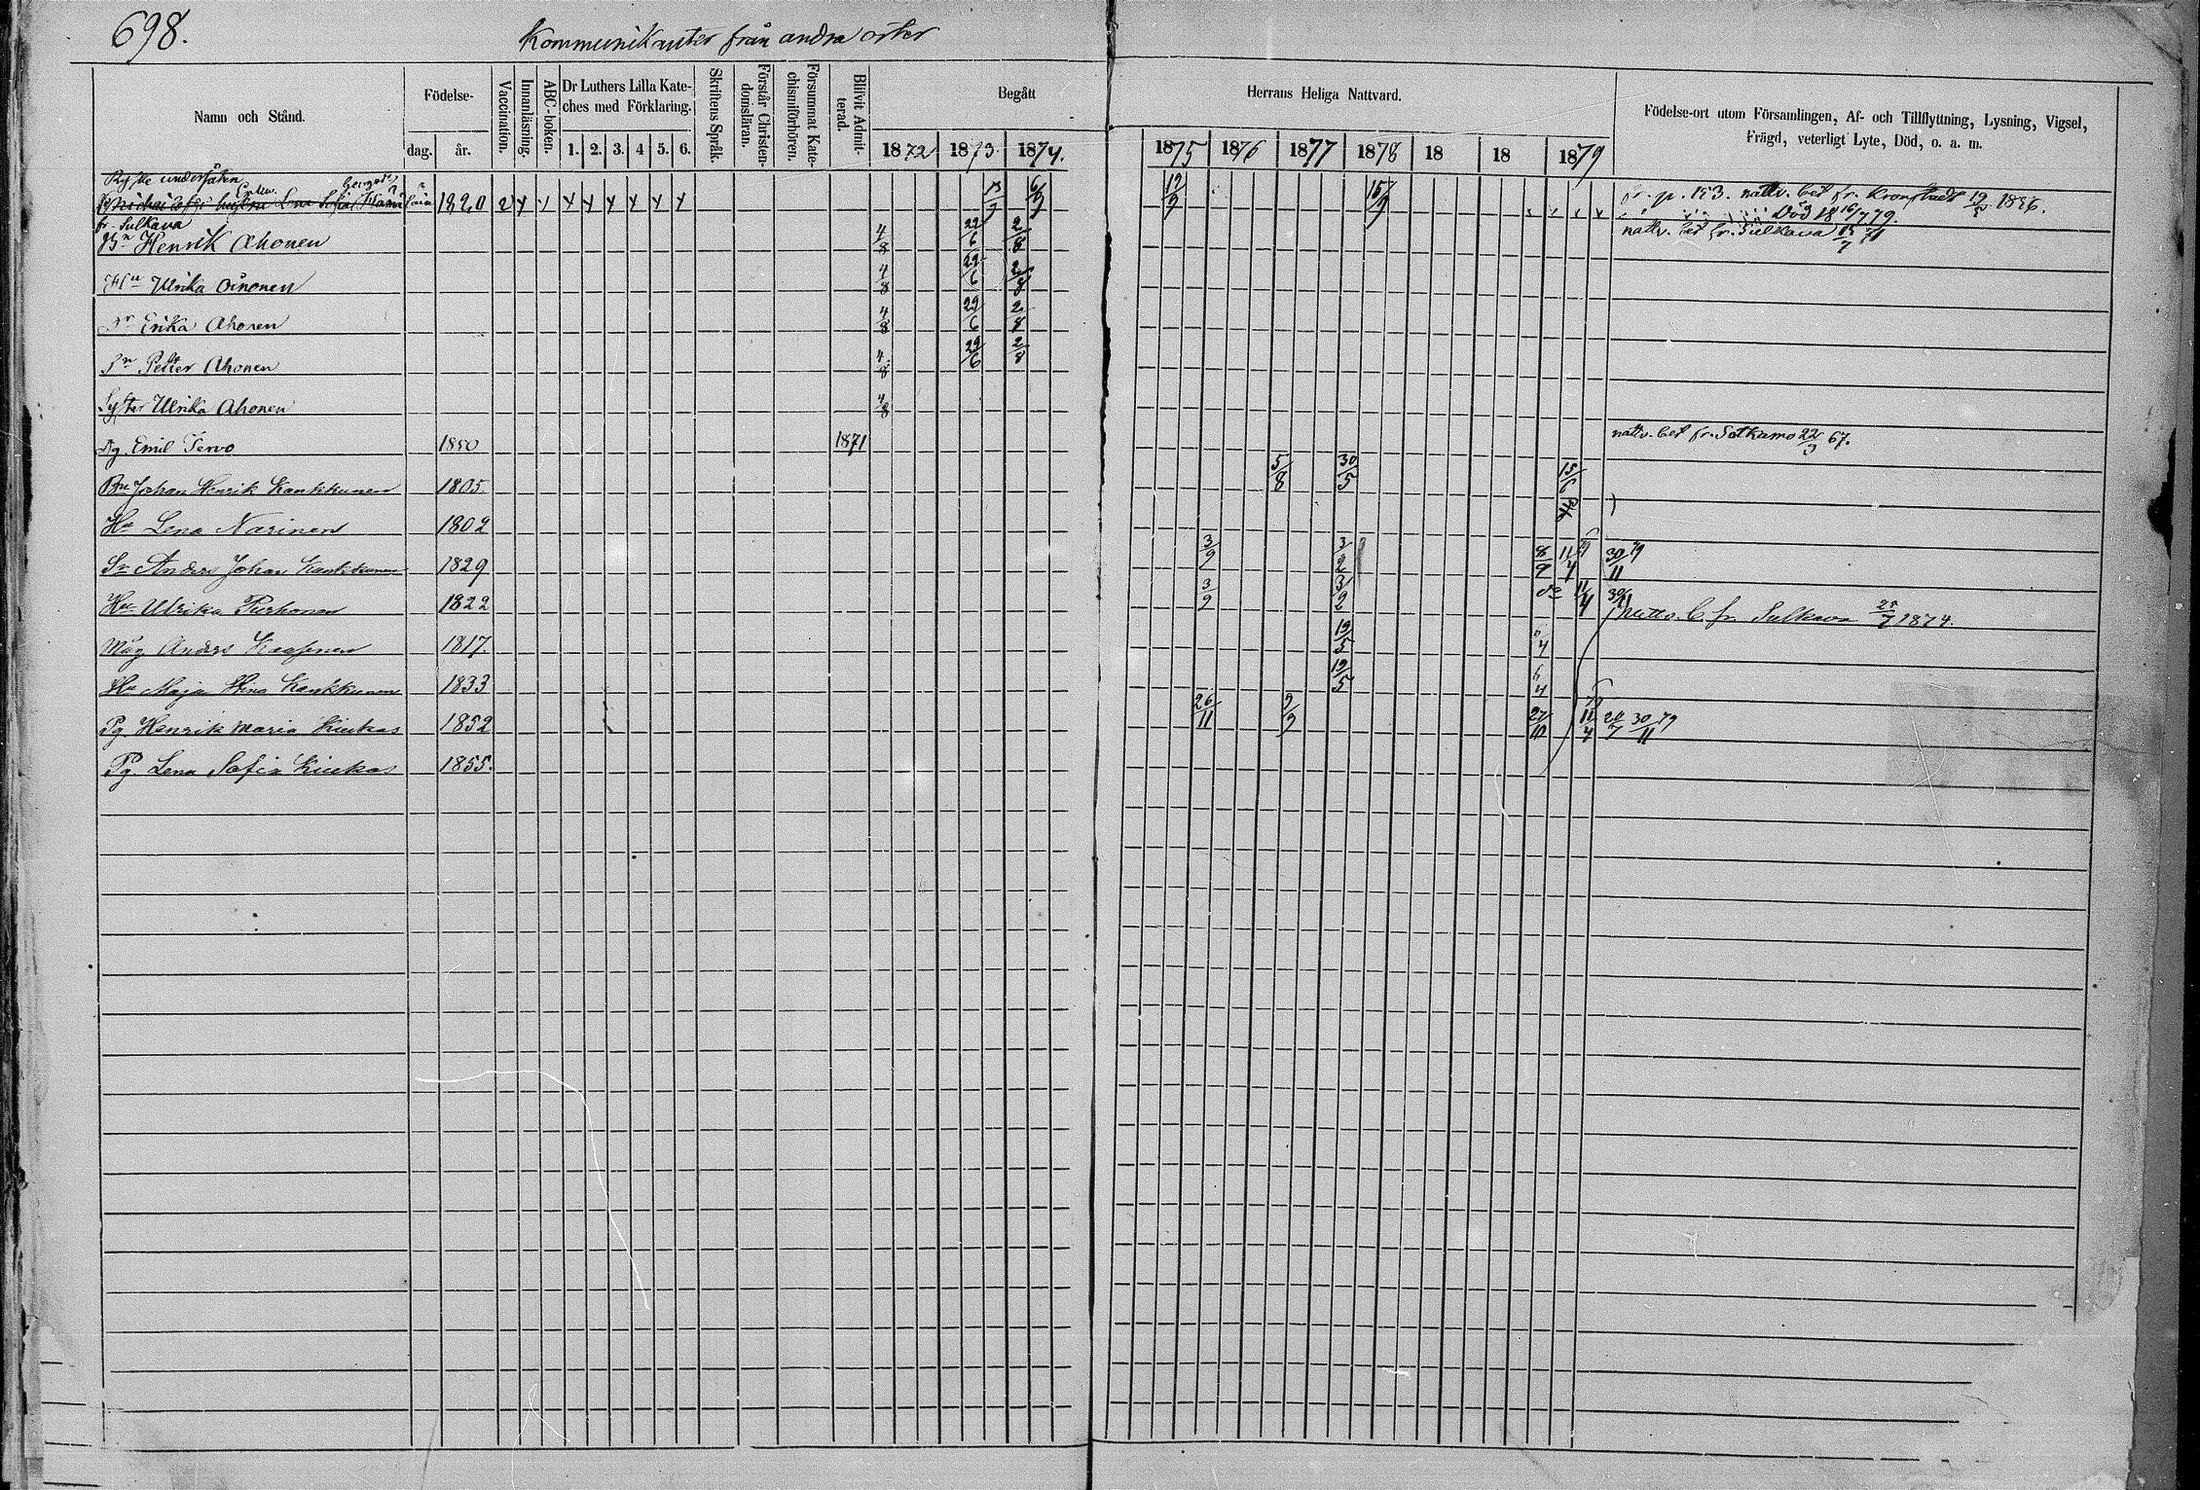 698.
Kommunikanter från andra orter
Namn och Stånd.
Födelse-
dag.
år.
Vaccination.
Innanläsning.
ABC-boken.
Dr Luthers Lilla Kate-
ches med Förklaring.
1. 2. 3. 4 5. 6.
Skriftens Språk.
Förstår Christen-
domsläran.
Försummat Kate-
chismiförhören.
Blifvit Admit-
terad.
Begått
1872 1873. 1874.
Herrans Heliga Nattvard.
1875 1876 1877 1878 18 18 1879
Födelse-ort utom Församlingen, Af- och Tillflyttning, Lysning, Vigsel,
Frägd, veterligt Lyte, Död, o. a. m.
Ryske undersåten
Enkan
Lena Sofia 1820 2 x x x x x x x x 6/9 19/9 15/9 fr. p. 153. nattv. bet fr. Kronstadt 1836.
Död 18 16/7 79.
fr. Sulkava
Bn Henrik Ahonen 4/8 29/6 2/8 nattv. bet fr. Sulkava 71
Hu Ulrika Ahonen 4/8 29/6 2/8
Erika Ahonen 4/8 29/6 2/8
Petter Ahonen 4/8 29/6 2/8
Syster Ulrika Ahonen 4/8
Emil Tervo 1850 1871 nattv. bet fr. Sotkamo 22/3 67.
Bn Johan Henrik Kankkunen 1805. 5/8 30/5 15/6
Hu Lena Narinen 1802
Sn Anders Johan Kankkunen 1829 3/9 3/2 8/9 11/4 30/11 79
Hu Ulrika Purhonen 1822 3/9 3/2 do 11/4 30/11
Nattv. b. fr. Sulkava 1874.
Måg Anders 1817. 19/5
Hu Maja Stina Kankkunen 1833 19/5
Pg Henrik Maria Kiukas 1852 26/11 9/9 27/10 11/4 30/11 79
Pg. Lena Sofia Kiukas 1855.